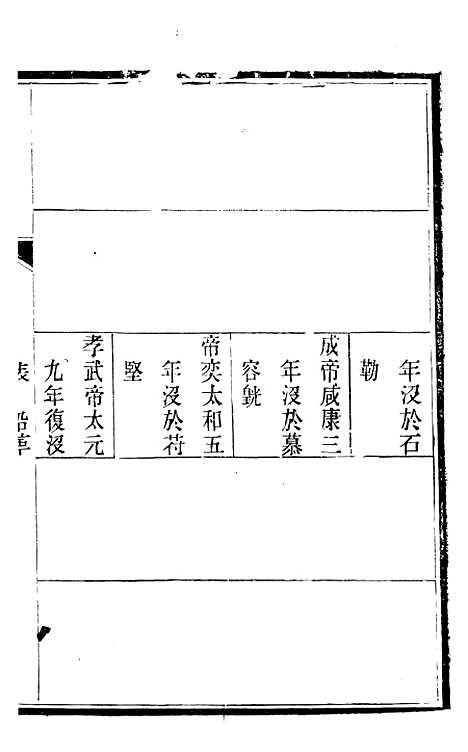 年沒於石
勒
成帝咸康三
年沒於慕
容皝
帝奕太和五
年沒於苻
堅
孝武帝太元
九年復沒
表 沿革